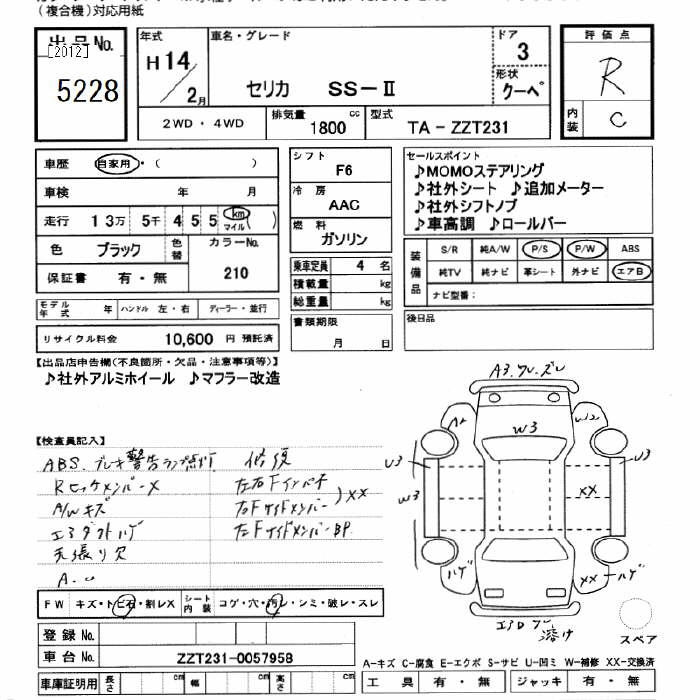 （複合機）対応用紙
出品No.
[2012]
5228
年式
H14/2月
車名・グレード
セリカ SS-Ⅱ
ドア
3
形状
クーペ
評価点
R
内装
C
2WD・4WD
排気量
1800 cc
型式
TA-ZZT231
車歴 自家用・（ ）
車検 年 月
走行 13万 5千 4 5 5 km マイル ( )
色 ブラック 色替
カラーNo.
210
保証書 有・無
モデル年式 年 ハンドル 左・右 ディーラー・並行
リサイクル料金 10,600 円 預託済
シフト
F6
冷房
AAC
燃料
ガソリン
乗車定員 4 名
積載量 kg
総重量 kg
書類期限
月 日
セールスポイント
♪MOMOステアリング
♪社外シート ♪追加メーター
♪社外シフトノブ
♪車高調 ♪ロールバー
装備品
S/R 純A/W P/S P/W ABS
純TV 純ナビ 革シート 外ナビ エアB
ナビ型番：
後日品
【出品店申告欄(不良箇所・欠品・注意事項等)】
♪社外アルミホイール ♪マフラー改造
【検査員記入】
ABS. ブレーキ警告ランプ点灯 修復
A/Wキズ
エアダクトハゲ
天張り欠
左右Fインパネ
右Fサイドメンバー )XX
左Fサイドメンバー BP.
FW キズ・トビ石・割レX シート内装 コゲ・穴・汚レ・シミ・破レ・スレ
登録No.
車台No. ZZT231-0057958
車庫証明用 長さ cm 幅 cm 高さ cm
W3
U3
W3
U3
XX
ハゲ
XX ハゲ
溶け
スペア
A-キズ C-腐食 E-エクボ S-サビ U-凹ミ W-補修 XX-交換済
工具 有・無 ジャッキ 有・無